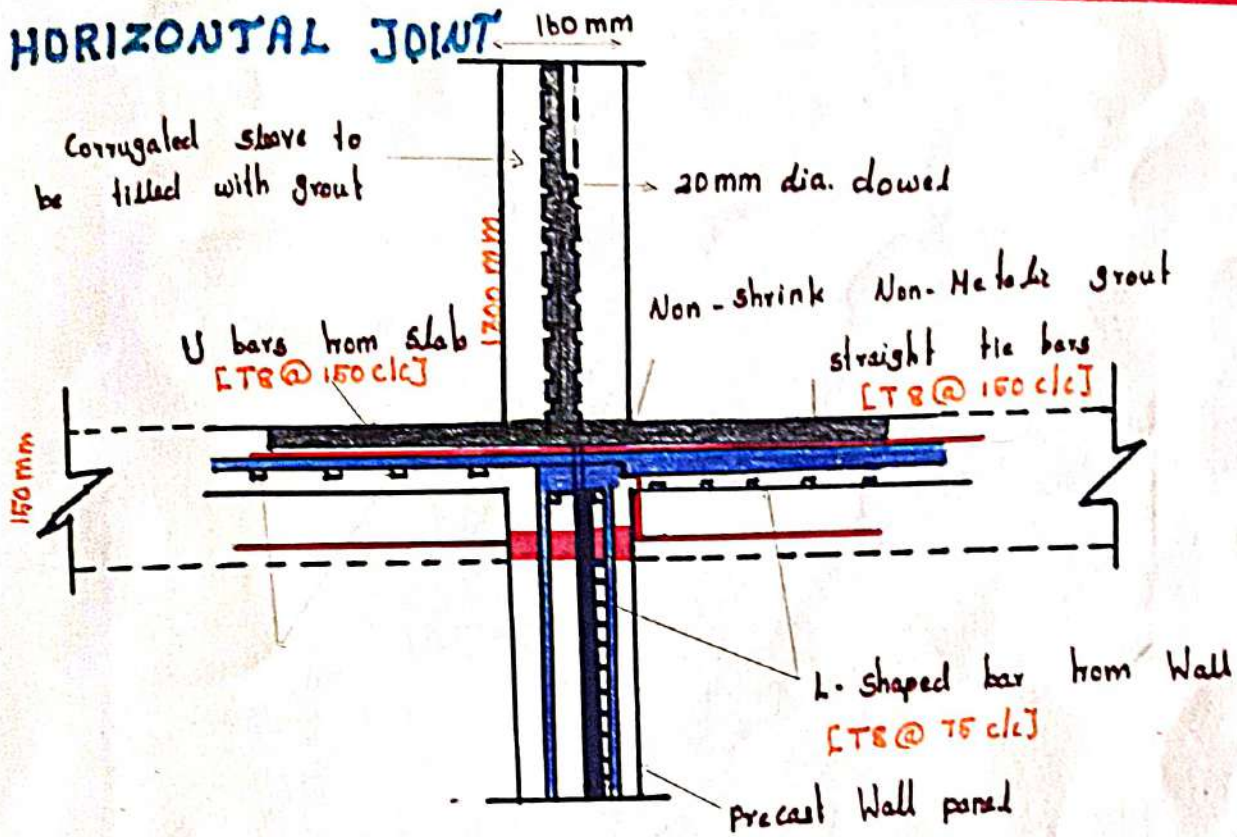 HORIZONTAL JOINT
160 mm
Corrugated sleeve to
be filled with grout
20mm dia. dowel
1200 mm
Non-shrink Non-Metalic grout
U bars from slab
[T8@150 c/c]
straight tie bars
[T8@150 c/c]
150 mm
L-shaped bar from Wall
[T8@75 c/c]
precast Wall panel